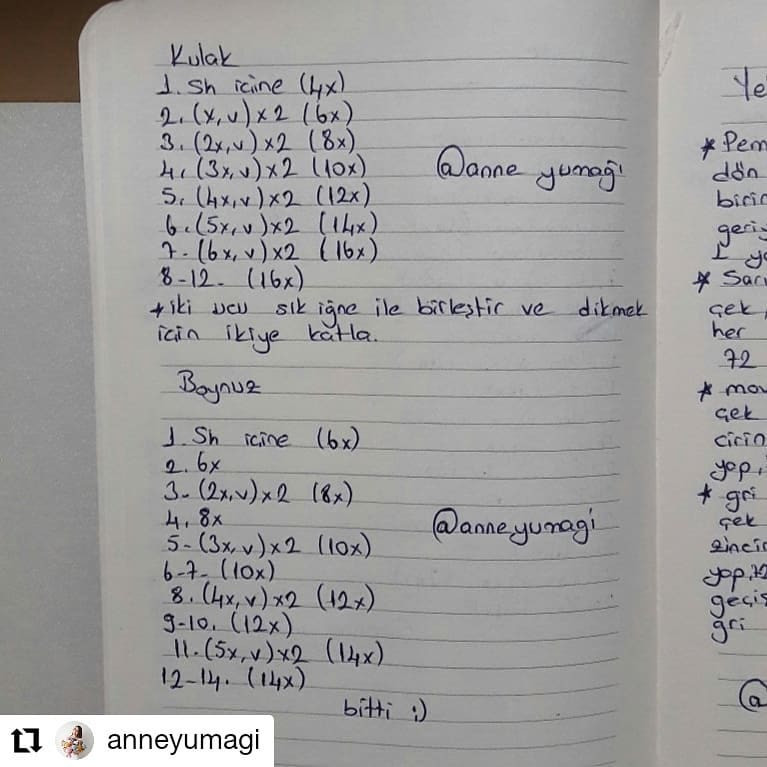 Kulak
1. Sh içine (4x)
2. (x,v)x2 (6x)
3. (2x,v)x2 (8x)
4. (3x,v)x2 (10x)
@anne yumağı
5. (4x,v)x2 (12x)
6. (5x,v)x2 (14x)
7- (6x,v)x2 (16x)
8-12- (16x)
* iki ucu sık iğne ile birleştir ve dikmek
için ikiye katla.
Boynuz
1. Sh içine (6x)
2. 6x
3- (2x,v)x2 (8x)
4. 8x
@anneyumagi
5- (3x,v)x2 (10x)
6-7- (10x)
8. (4x,v)x2 (12x)
9-10. (12x)
11. (5x,v)x2 (14x)
12-14. (14x)
bitti :)
Ye
* Pem
dön
birin
geriy
1 ya
* Sarı
çek,
her
72
* mov
çek
yap,
* gri
çek
zincir
geçiş
gri
@a
anneyumagi